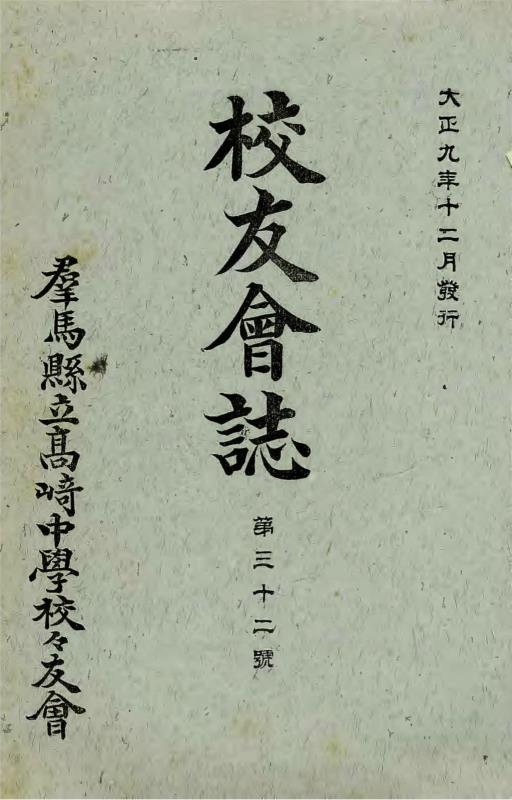 大正九年十二月發行
校友會誌
第三十二號
羣馬縣立髙﨑中學校々友會